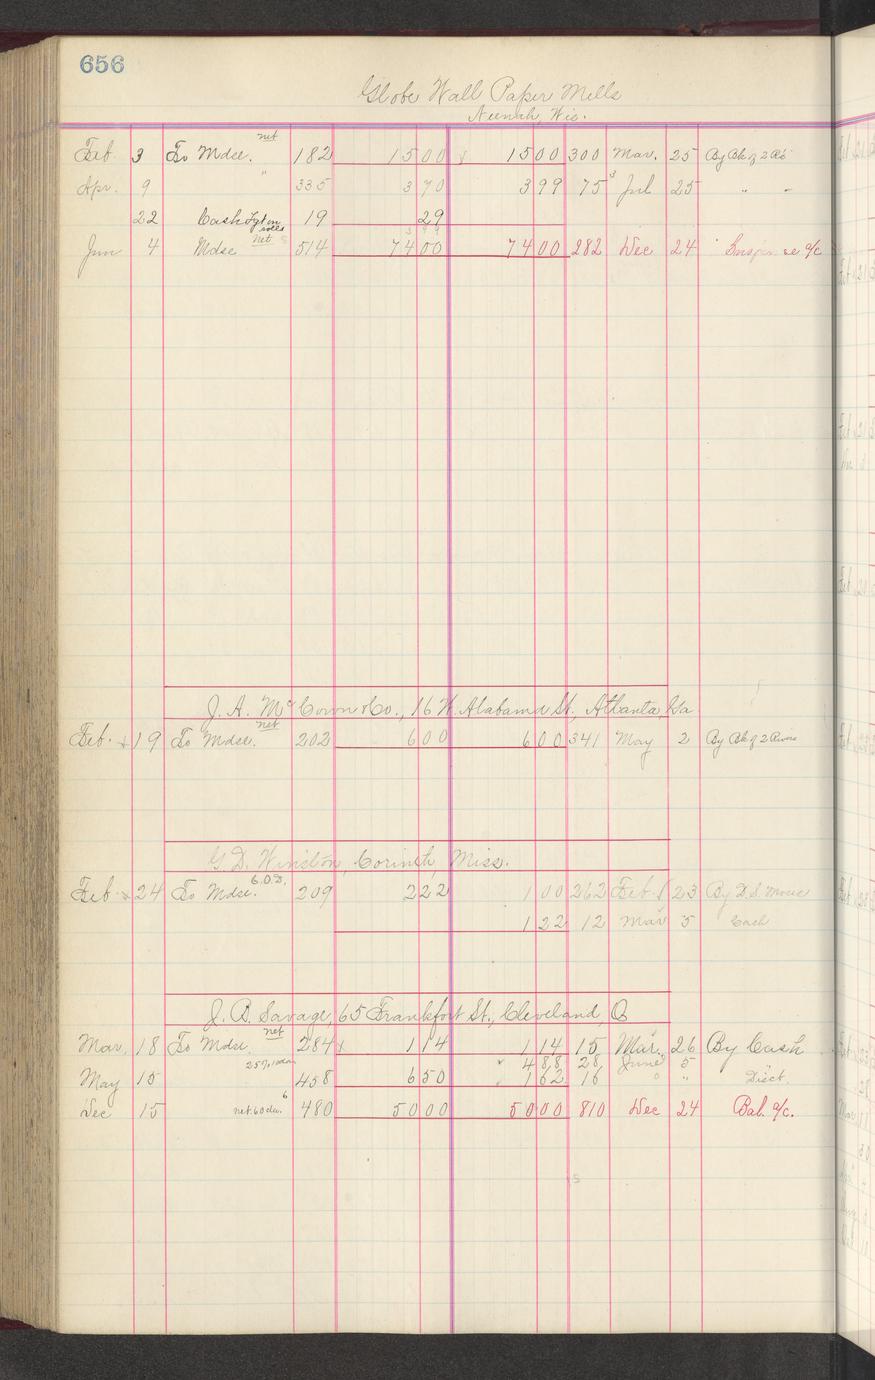 656
Globe Wall Paper Mills
Neenah, Wis.
Feb. 3 To Mdse. net 182 1500 1500 300 Mar. 25 By Bk of 2 Rs
Apr. 9 " 335 370 399 75 Jul 25 " "
22 Cash 19 29
Jun 4 Mdse net 514 7400 7400 282 Dec 24 Suspense a/c
J. A. McCown & Co., 16 W. Alabama St., Atlanta, Ga
Feb. 19 To Mdse. net 202 600 600 341 May 2 By Bk of 2 Rivers
G. D. Winston, Corinth, Miss.
Feb. 24 To Mdse. C.O.D. 209 222 100 262 Feb. 23 By D. S. Morse
122 12 Mar 5 Cash
J. B. Savage, 65 Frankfort St., Cleveland, O
Mar. 18 To Mdse. net 284 114 114 15 Mar. 26 By Cash
488 28 June 5 "
May 15 25% 10 da 458 650 162 16 " " Disct.
Dec 15 net 60 da. 480 5000 5000 810 Dec 24 Bal. a/c.